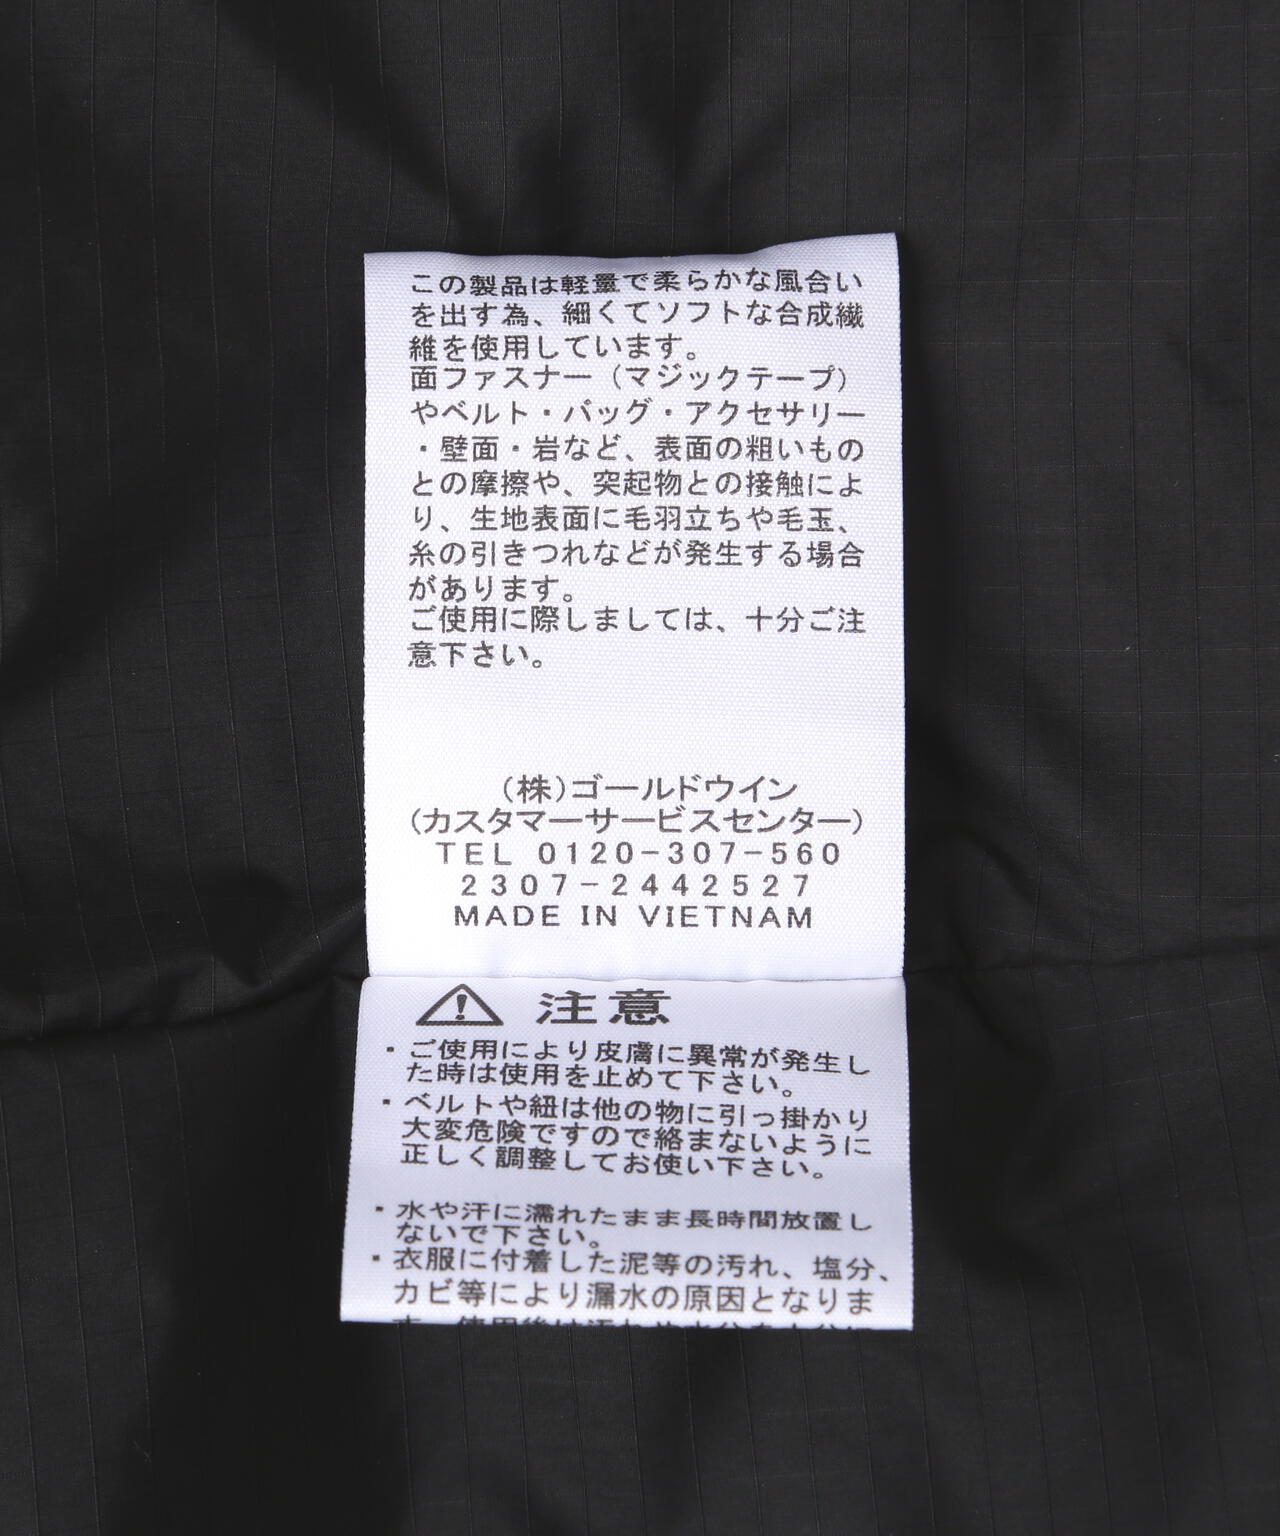 この製品は軽量で柔らかな風合い
を出す為、細くてソフトな合成繊
維を使用しています。
面ファスナー（マジックテープ）
やベルト・バッグ・アクセサリー
・壁面・岩など、表面の粗いもの
との摩擦や、突起物との接触によ
り、生地表面に毛羽立ちや毛玉、
糸の引きつれなどが発生する場合
があります。
ご使用に際しましては、十分ご注
意下さい。
(株)ゴールドウイン
(カスタマーサービスセンター)
TEL 0120-307-560
2307-2442527
MADE IN VIETNAM
注意
・ご使用により皮膚に異常が発生し
た時は使用を止めて下さい。
・ベルトや紐は他の物に引っ掛かり
大変危険ですので絡まないように
正しく調整してお使い下さい。
・水や汗に濡れたまま長時間放置し
ないで下さい。
・衣服に付着した泥等の汚れ、塩分、
カビ等により漏水の原因となりま